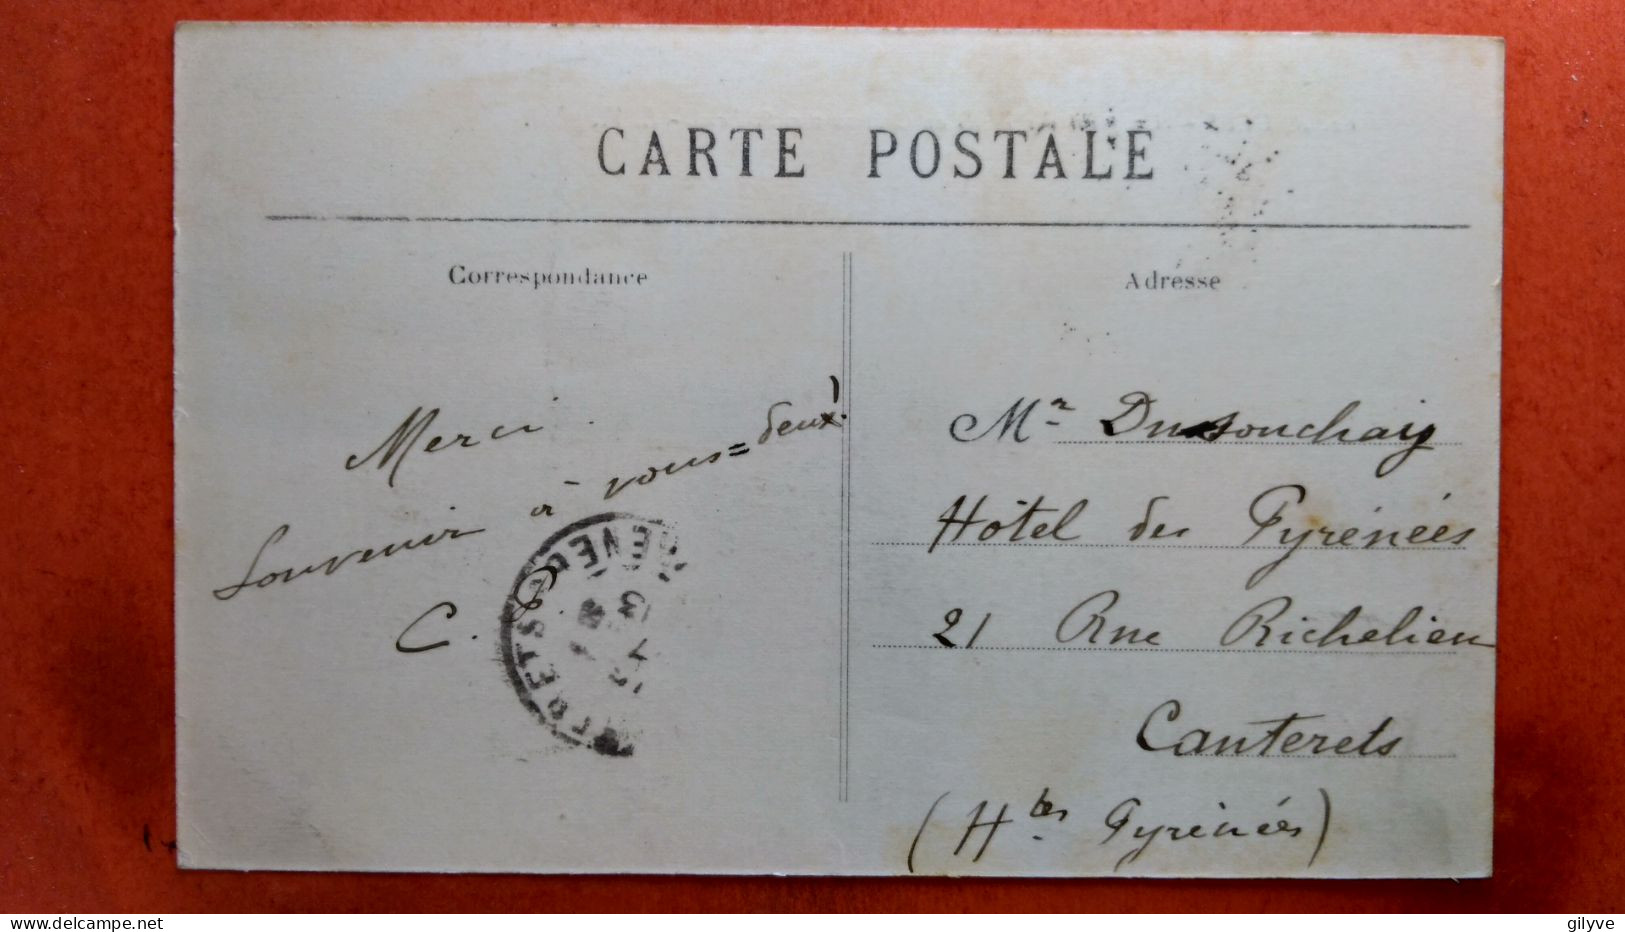 CARTE POSTALE
Correspondance
Adresse
Merci.
Souvenir à vous=deux!
C. P.
Mr Dussouchay
Hôtel des Pyrénées
21 Rue Richelieu
Cauterets
(Htes Pyrénées)
delcampe.net
gilyve